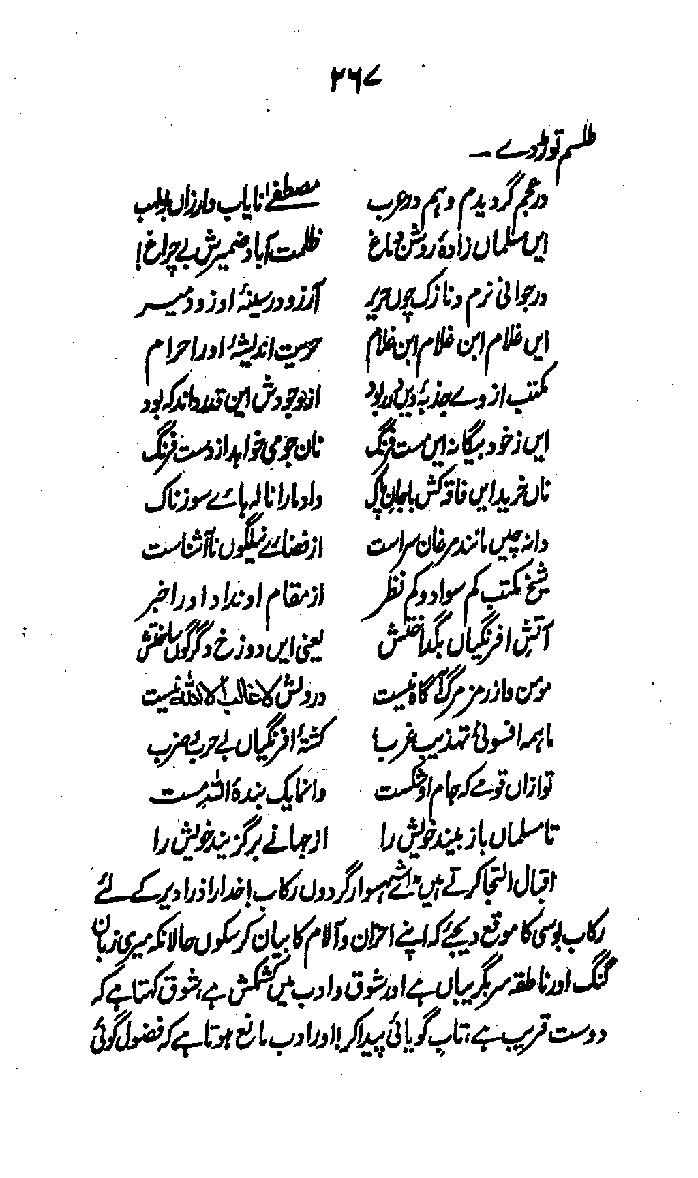 ۲۶۷
طلسم توڑ دے ۔
در عجم گردیدم و ہم در عرب مصطفےٰ نایاب و ارزاں بولہب
ایں مسلماں زادۂ روشن دماغ ظلمت آباد ضمیرش بے چراغ!
در جوانی نرم و نازک چوں حریر آرزو در سینۂ او زود میر
ایں غلام ابن غلام ابن غلام حریت اندیشۂ او را حرام
مکتب از وے جذبۂ دیں در ربود از وجودش این قدر داند کہ بود
ایں ز خود بیگانہ ایں مست فرنگ نان جو می خواہد از دست فرنگ
ناں خرید ایں فاقہ کش با جان پاک داد ما را نالہ ہائے سوز ناک
دانہ چیں مانند مرغان سراست از فضائے نیلگوں نا آشناست
شیخ مکتب کم سواد و کم نظر از مقام او نداد او را خبر
آتش افرنگیاں بگداختش یعنی ایں دوزخ دگرگوں ساختش
مومن و از رمز مرگ آگاہ نیست در دلش لا غالب الا اللہ نیست
ما ہمہ افسونی تہذیب غرب کشتۂ افرنگیاں بے حرب و ضرب
تو ازاں قومے کہ جام او شکست وا نما یک بندۂ اللہ مست
تا مسلماں باز بیند خویش را از جہانے برگزیند خویش را
اقبال التجا کرتے ہیں؛ اے شہسوار گردوں رکاب! خدارا ذرا دیر کے لئے
رکاب بوسی کا موقع دیجئے کہ اپنے احزان و آلام کا بیان کر سکوں حالانکہ میری زبان
گنگ اور ناطقہ سربگریباں ہے اور شوق و ادب میں کشمکش ہے، شوق کہتا ہے کہ
دوست قریب ہے، تاب گویائی پیدا کر! اور ادب مانع ہوتا ہے کہ فضول گوئی